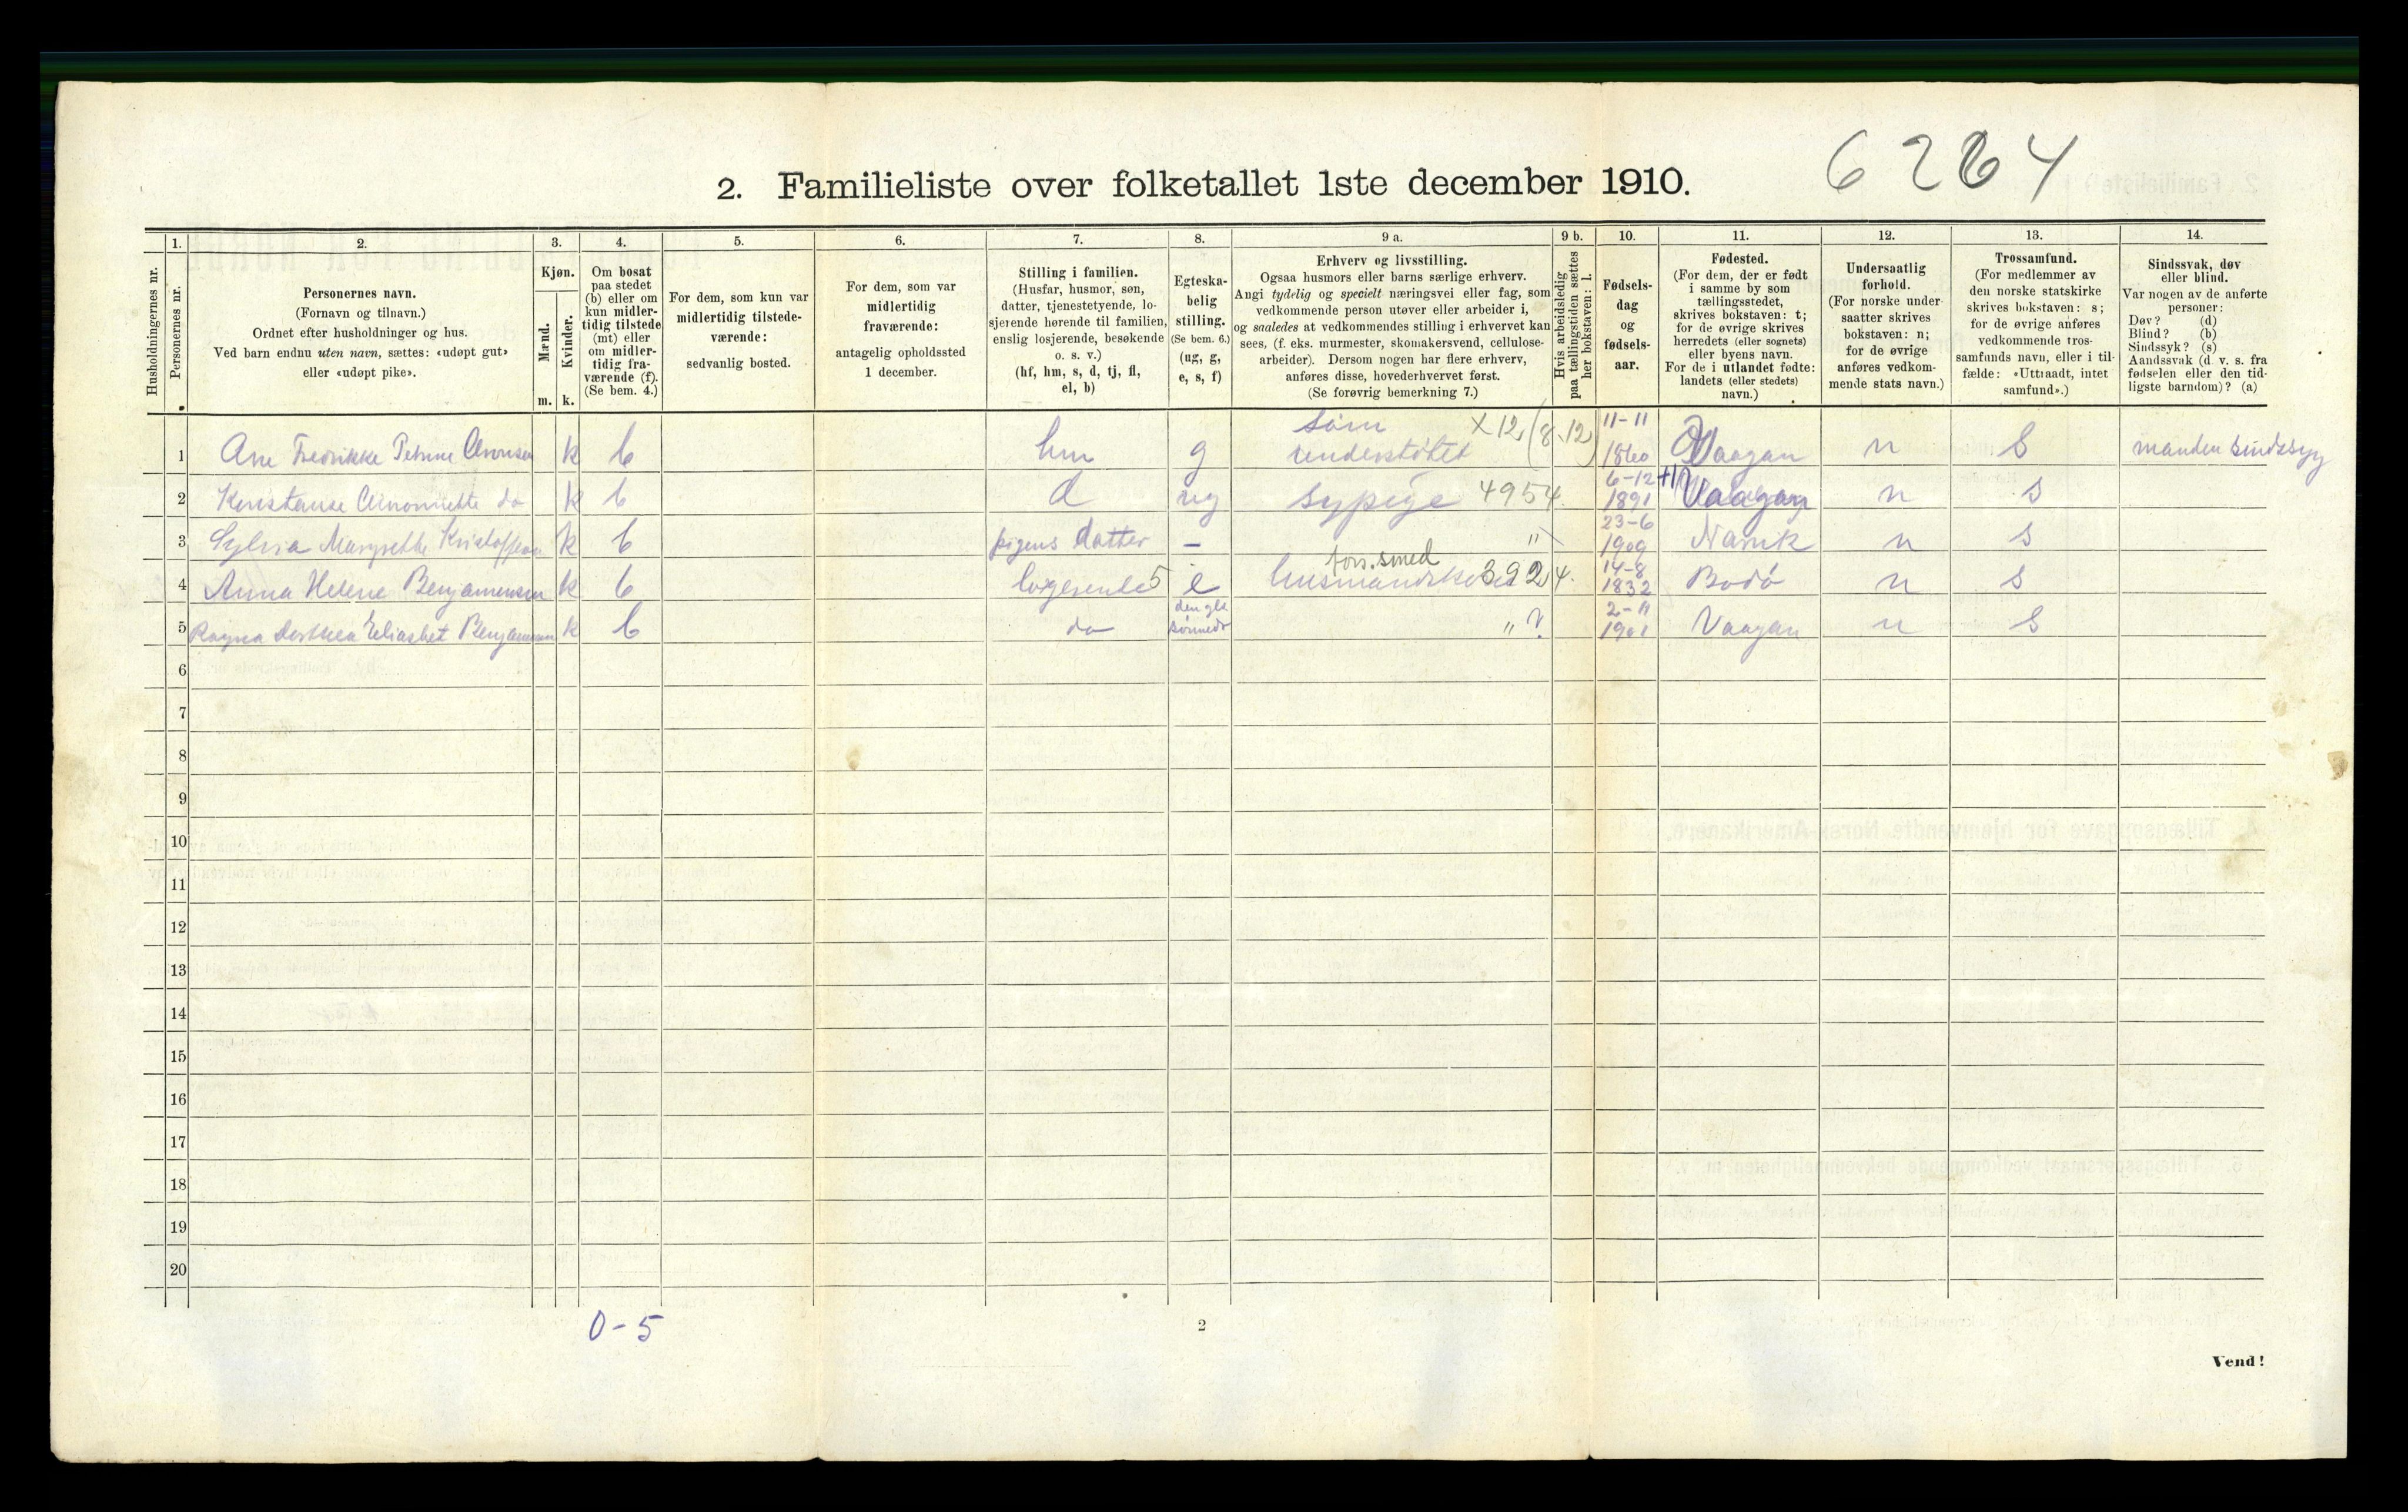 6264
2. Familieliste over folketallet 1ste december 1910.
1. 2. 3. 4. 5. 6. 7. 8. 9 a. 9 b. 10. 11. 12. 13. 14.
Husholdningernes nr.
Personernes nr.
Personernes navn.
(Fornavn og tilnavn.)
Ordnet efter husholdninger og hus.
Ved barn endnu uten navn, sættes: «udøpt gut»
eller «udøpt pike».
Kjøn.
Mænd.
Kvinder.
m. k.
Om bosat
paa stedet
(b) eller om
kun midler-
tidig tilstede
(mt) eller
om midler-
tidig fra-
værende (f).
(Se bem. 4.)
For dem, som kun var
midlertidig tilstede-
værende:
sedvanlig bosted.
For dem, som var
midlertidig
fraværende:
antagelig opholdssted
1 december.
Stilling i familien.
(Husfar, husmor, søn,
datter, tjenestetyende, lo-
sjerende hørende til familien,
enslig losjerende, besøkende
o. s. v.)
(hf, hm, s, d, tj, fl,
el, b)
Egteska-
belig
stilling.
(Se bem. 6.)
(ug, g,
e, s, f)
Erhverv og livsstilling.
Ogsaa husmors eller barns særlige erhverv.
Angi tydelig og specielt næringsvei eller fag, som
vedkommende person utøver eller arbeider i,
og saaledes at vedkommendes stilling i erhvervet kan
sees, (f. eks. murmester, skomakersvend, cellulose-
arbeider). Dersom nogen har flere erhverv,
anføres disse, hovederhvervet først.
(Se forøvrig bemerkning 7.)
Hvis arbeidsledig
paa tællingstiden sættes
her bokstaven: l.
Fødsels-
dag
og
fødsels-
aar.
Fødested.
(For dem, der er født
i samme by som
tællingsstedet,
skrives bokstaven: t;
for de øvrige skrives
herredets (eller sognets)
eller byens navn.
For de i utlandet fødte:
landets (eller stedets)
navn.)
Undersaatlig
forhold.
(For norske under-
saatter skrives
bokstaven: n;
for de øvrige
anføres vedkom-
mende stats navn.)
Trossamfund.
(For medlemmer av
den norske statskirke
skrives bokstaven: s;
for de øvrige anføres
vedkommende tros-
samfunds navn, eller i til-
fælde: «Uttraadt, intet
samfund».)
Sindssvak, døv
eller blind.
Var nogen av de anførte
personer:
Døv? (d)
Blind? (b)
Sindssyk? (s)
Aandssvak (d. v. s. fra
fødselen eller den tid-
ligste barndom)? (a)
1 Ane Fredrikke Petrine Aronsen k b hm g søm understøttet X12 (8.12) 11-11 1860 Vaagan n S manden sindssyg
2 Konstanse Antonette do k b d ug sypige 4954. 6-12 1891 Vaagan n s
3 Sylvia Margrethe Kristoffersen k b pigens datter – " 23-6 1909 Narvik n s
4 Anna Helene Benjamensen k b logerende 5 e fors. smed 392 4. 14-8 1832 Bodø n s
5 Ragna Dorthea Eliasbet Benjamensen k b do " 2-11 1901 Vaagan n S
6
7
8
9
10
11
12
13
14
15
16
17
18
19
20
0-5
2
Vend!